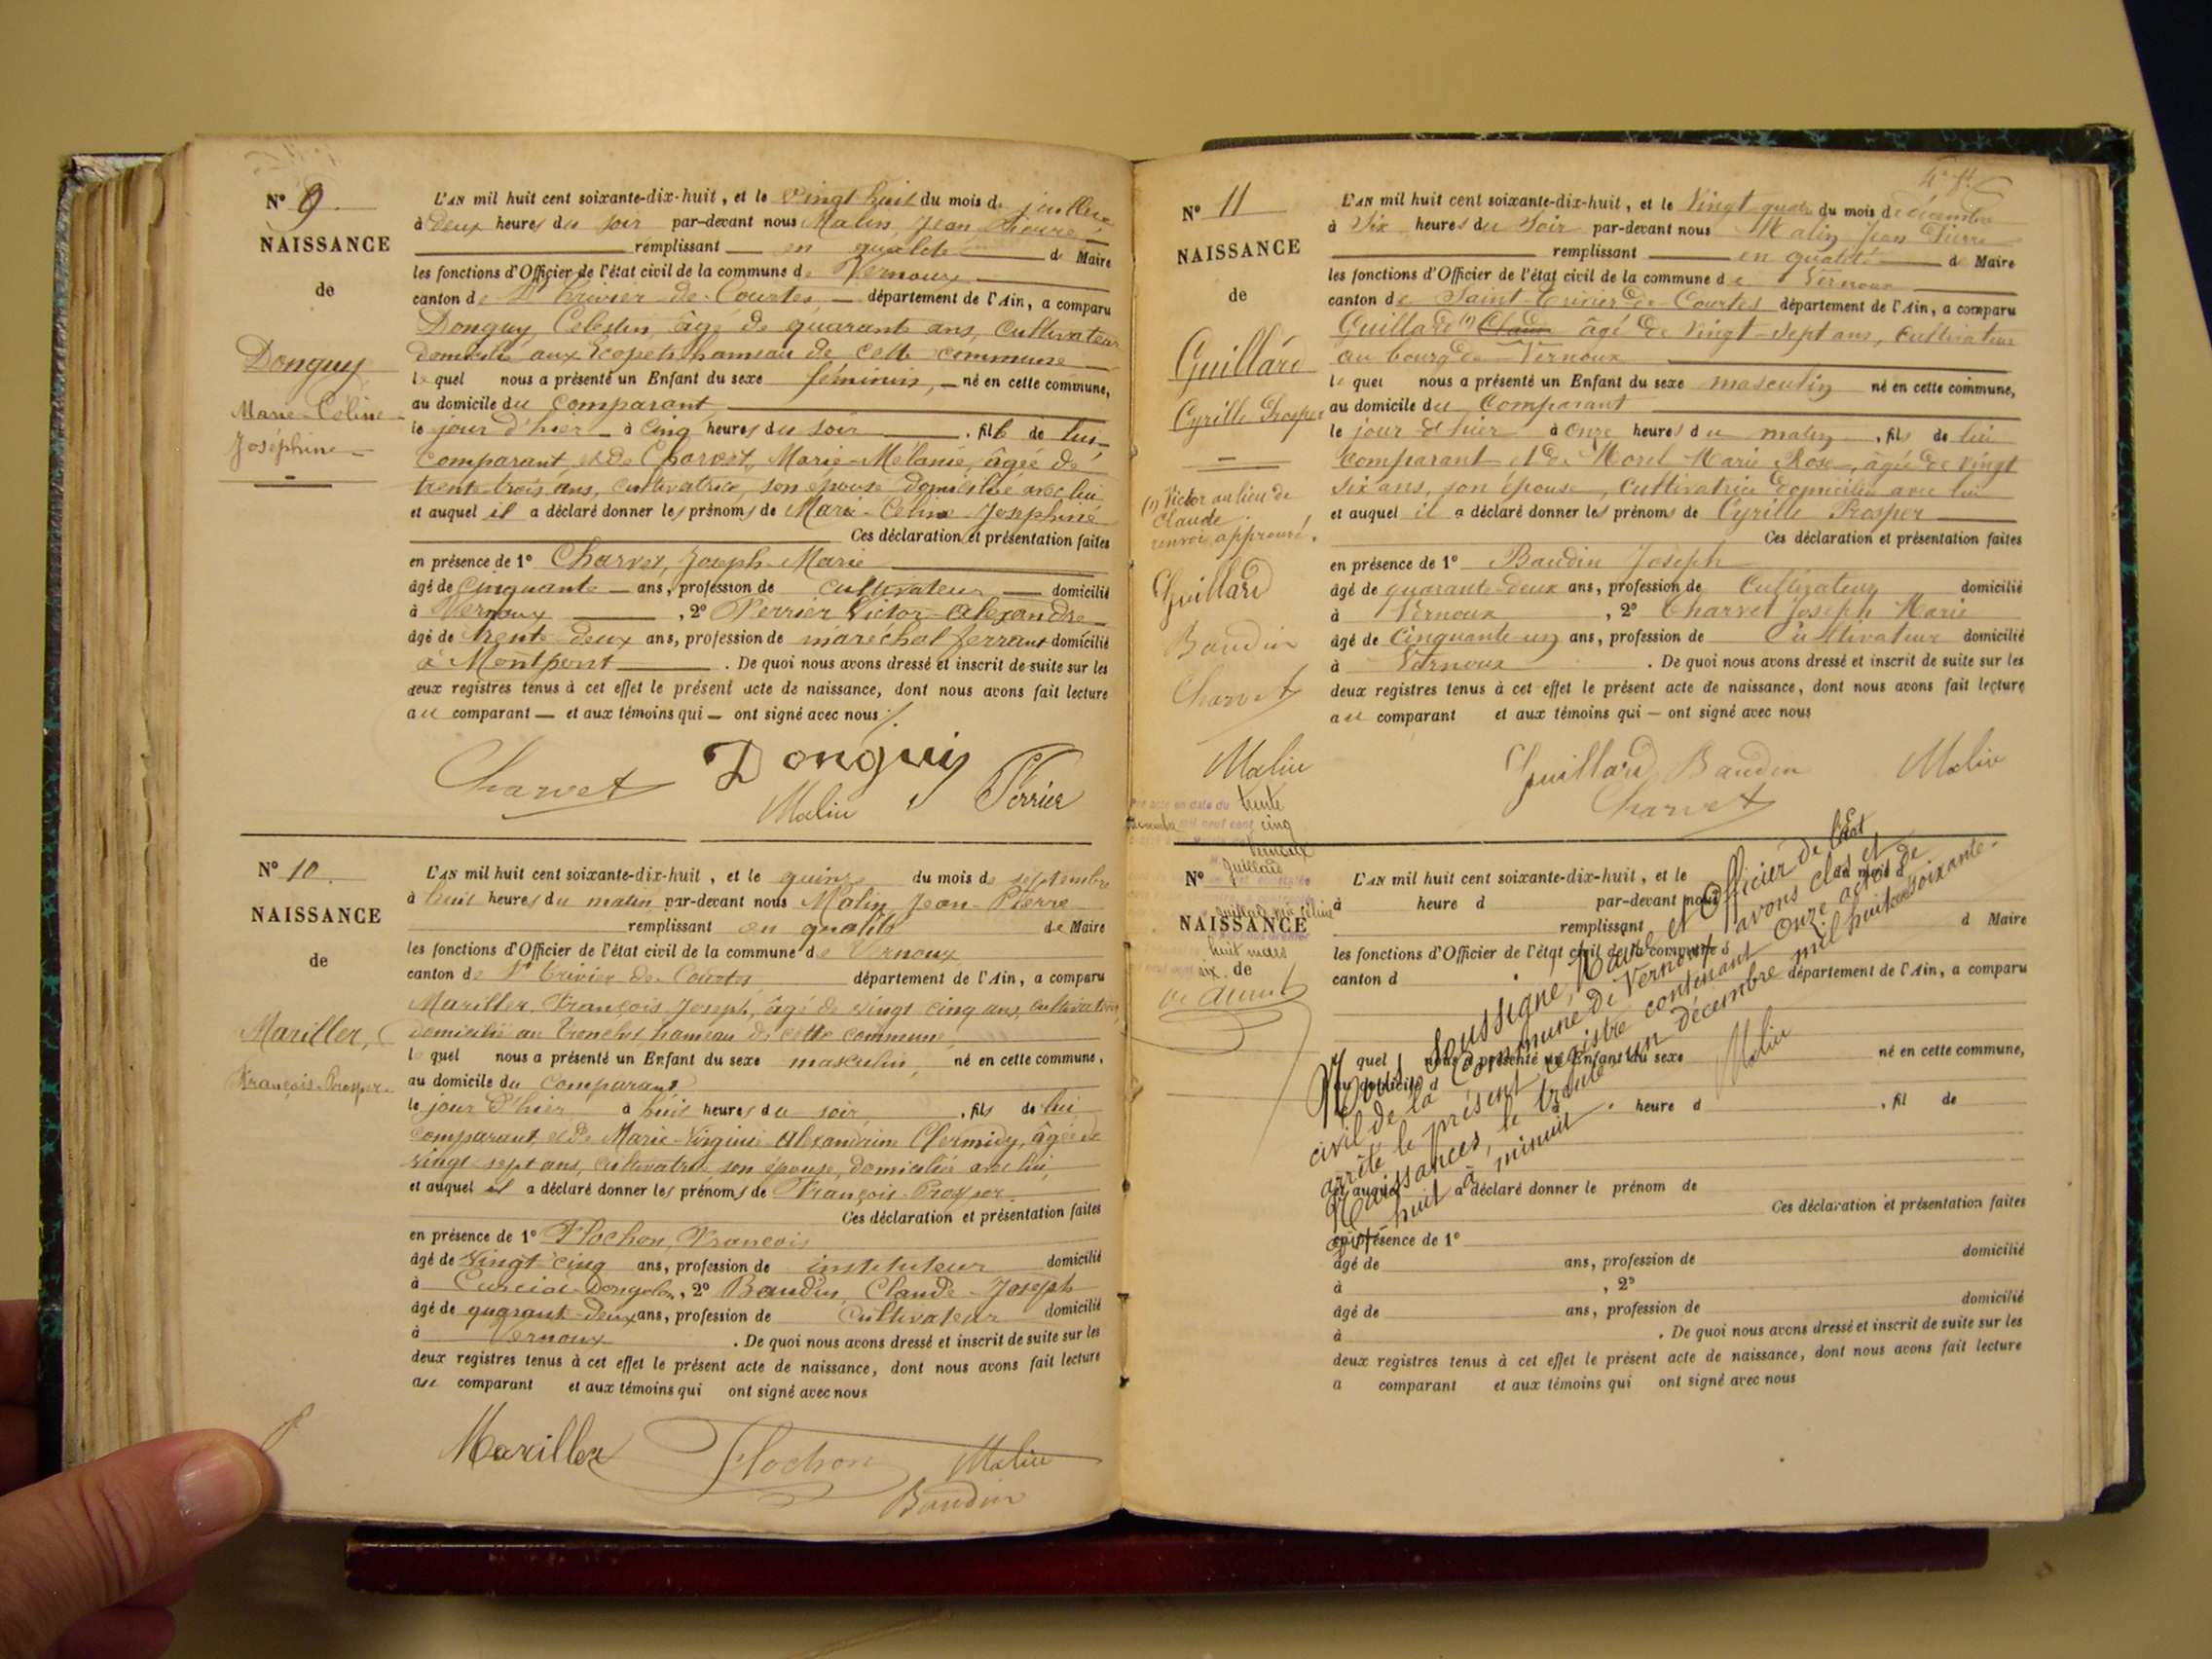 N° 9.
NAISSANCE
de
Donguy
Marie-Céline
Joséphine
L'AN mil huit cent soixante-dix-huit, et le vingt huit du mois de juillet
à deux heures du soir par-devant nous Malin, Jean Pierre
remplissant en qualité de Maire
les fonctions d'Officier de l'état civil de la commune de Vernoux
canton de St Trivier-de-Courtes département de l'Ain, a comparu
Donguy, Celestin, âgé de quarante ans, Cultivateur
domicilié aux Ecopets hameau de cette commune
le quel nous a présenté un Enfant du sexe féminin, né en cette commune,
au domicile du comparant
le jour d'hier à Cinq heures du soir, fille de lui
comparant et de Charvet, Marie-Mélanie, âgée de
trente trois ans, cultivatrice, son épouse domiciliée avec lui
et auquel il a déclaré donner les prénoms de Marie-Céline-Joséphine
Ces déclaration et présentation faites
en présence de 1° Charvet, Joseph-Marie
âgé de cinquante ans, profession de cultivateur domicilié
à Vernoux, 2° Perrier Victor-Alexandre
âgé de trente deux ans, profession de maréchal ferrant domicilié
à Montpont. De quoi nous avons dressé et inscrit de suite sur les
deux registres tenus à cet effet le présent acte de naissance, dont nous avons fait lecture
au comparant et aux témoins qui ont signé avec nous
Charvet Donguy Perrier
Malin
N° 10.
NAISSANCE
de
Mariller,
François-Prosper
L'AN mil huit cent soixante-dix-huit, et le quinze du mois de septembre
à huit heures du matin par-devant nous Malin, Jean-Pierre
remplissant en qualité de Maire
les fonctions d'Officier de l'état civil de la commune de Vernoux
canton de St Trivier de Courtes département de l'Ain, a comparu
Mariller, François Joseph, âgé de vingt cinq ans, cultivateur
domicilié au Tronchet hameau de cette commune
le quel nous a présenté un Enfant du sexe masculin, né en cette commune,
au domicile du comparant
le jour d'hier à huit heures du soir, fils de lui
comparant et de Marie-Virginie-Alexandrine Clermidy, âgée de
vingt sept ans, cultivatrice son épouse, domiciliée avec lui,
et auquel il a déclaré donner les prénoms de François-Prosper
Ces déclaration et présentation faites
en présence de 1° Flochon, François
âgé de vingt cinq ans, profession de instituteur domicilié
à Curciat-Dongalon, 2° Baudin, Claude-Joseph
âgé de quarante-deux ans, profession de Cultivateur domicilié
à Vernoux. De quoi nous avons dressé et inscrit de suite sur les
deux registres tenus à cet effet le présent acte de naissance, dont nous avons fait lecture
au comparant et aux témoins qui ont signé avec nous
Mariller Flochon Malin
Baudin
N° 11
NAISSANCE
de
Guillard
Cyrille Prosper
(1) Victor au lieu de
Claude
renvoi approuvé.
Guillard
Baudin
Charvet
Malin
L'AN mil huit cent soixante-dix-huit, et le Vingt quatre du mois de décembre
à Six heures du Soir par-devant nous Malin Jean Pierre
remplissant en qualité de Maire
les fonctions d'Officier de l'état civil de la commune de Vernoux
canton de Saint-Trivier de Courtes département de l'Ain, a comparu
Guillard (1) Claude âgé de vingt-sept ans, cultivateur
au bourg de Vernoux
le quel nous a présenté un Enfant du sexe masculin né en cette commune,
au domicile du Comparant
le jour d'hier à onze heures du matin, fils de lui
Comparant et de Morel Marie Rose, âgée de vingt
six ans, son épouse, Cultivatrice domiciliée avec lui
et auquel il a déclaré donner les prénoms de Cyrille Prosper
Ces déclaration et présentation faites
en présence de 1° Baudin Joseph
âgé de quarante-deux ans, profession de Cultivateur domicilié
à Vernoux, 2° Charvet Joseph Marie
âgé de Cinquante un ans, profession de Cultivateur domicilié
à Vernoux. De quoi nous avons dressé et inscrit de suite sur les
deux registres tenus à cet effet le présent acte de naissance, dont nous avons fait lecture
au comparant et aux témoins qui ont signé avec nous
Guillard Baudin Malin
Charvet
en date du trente
cinq
Vernoux
Guillard
huit mars
six
N°
NAISSANCE
de
L'AN mil huit cent soixante-dix-huit, et le du mois d
à heure d par-devant nous
remplissant d Maire
les fonctions d'Officier de l'état civil de la commune d
canton d département de l'Ain, a comparu
quel nous a présenté un Enfant du sexe né en cette commune,
au domicile d
heure d, fil de
et auquel a déclaré donner le prénom de
Ces déclaration et présentation faites
en présence de 1°
âgé de ans, profession de domicilié
à , 2°
âgé de ans, profession de domicilié
à . De quoi nous avons dressé et inscrit de suite sur les
deux registres tenus à cet effet le présent acte de naissance, dont nous avons fait lecture
a comparant et aux témoins qui ont signé avec nous
Nous Soussigné, Maire et Officier de l'état
civil de la Commune de Vernoux, avons clos et
arrêté le présent registre contenant onze actes de
Naissances, le trente un décembre mil huit cent soixante-
dix huit à minuit.
Malin